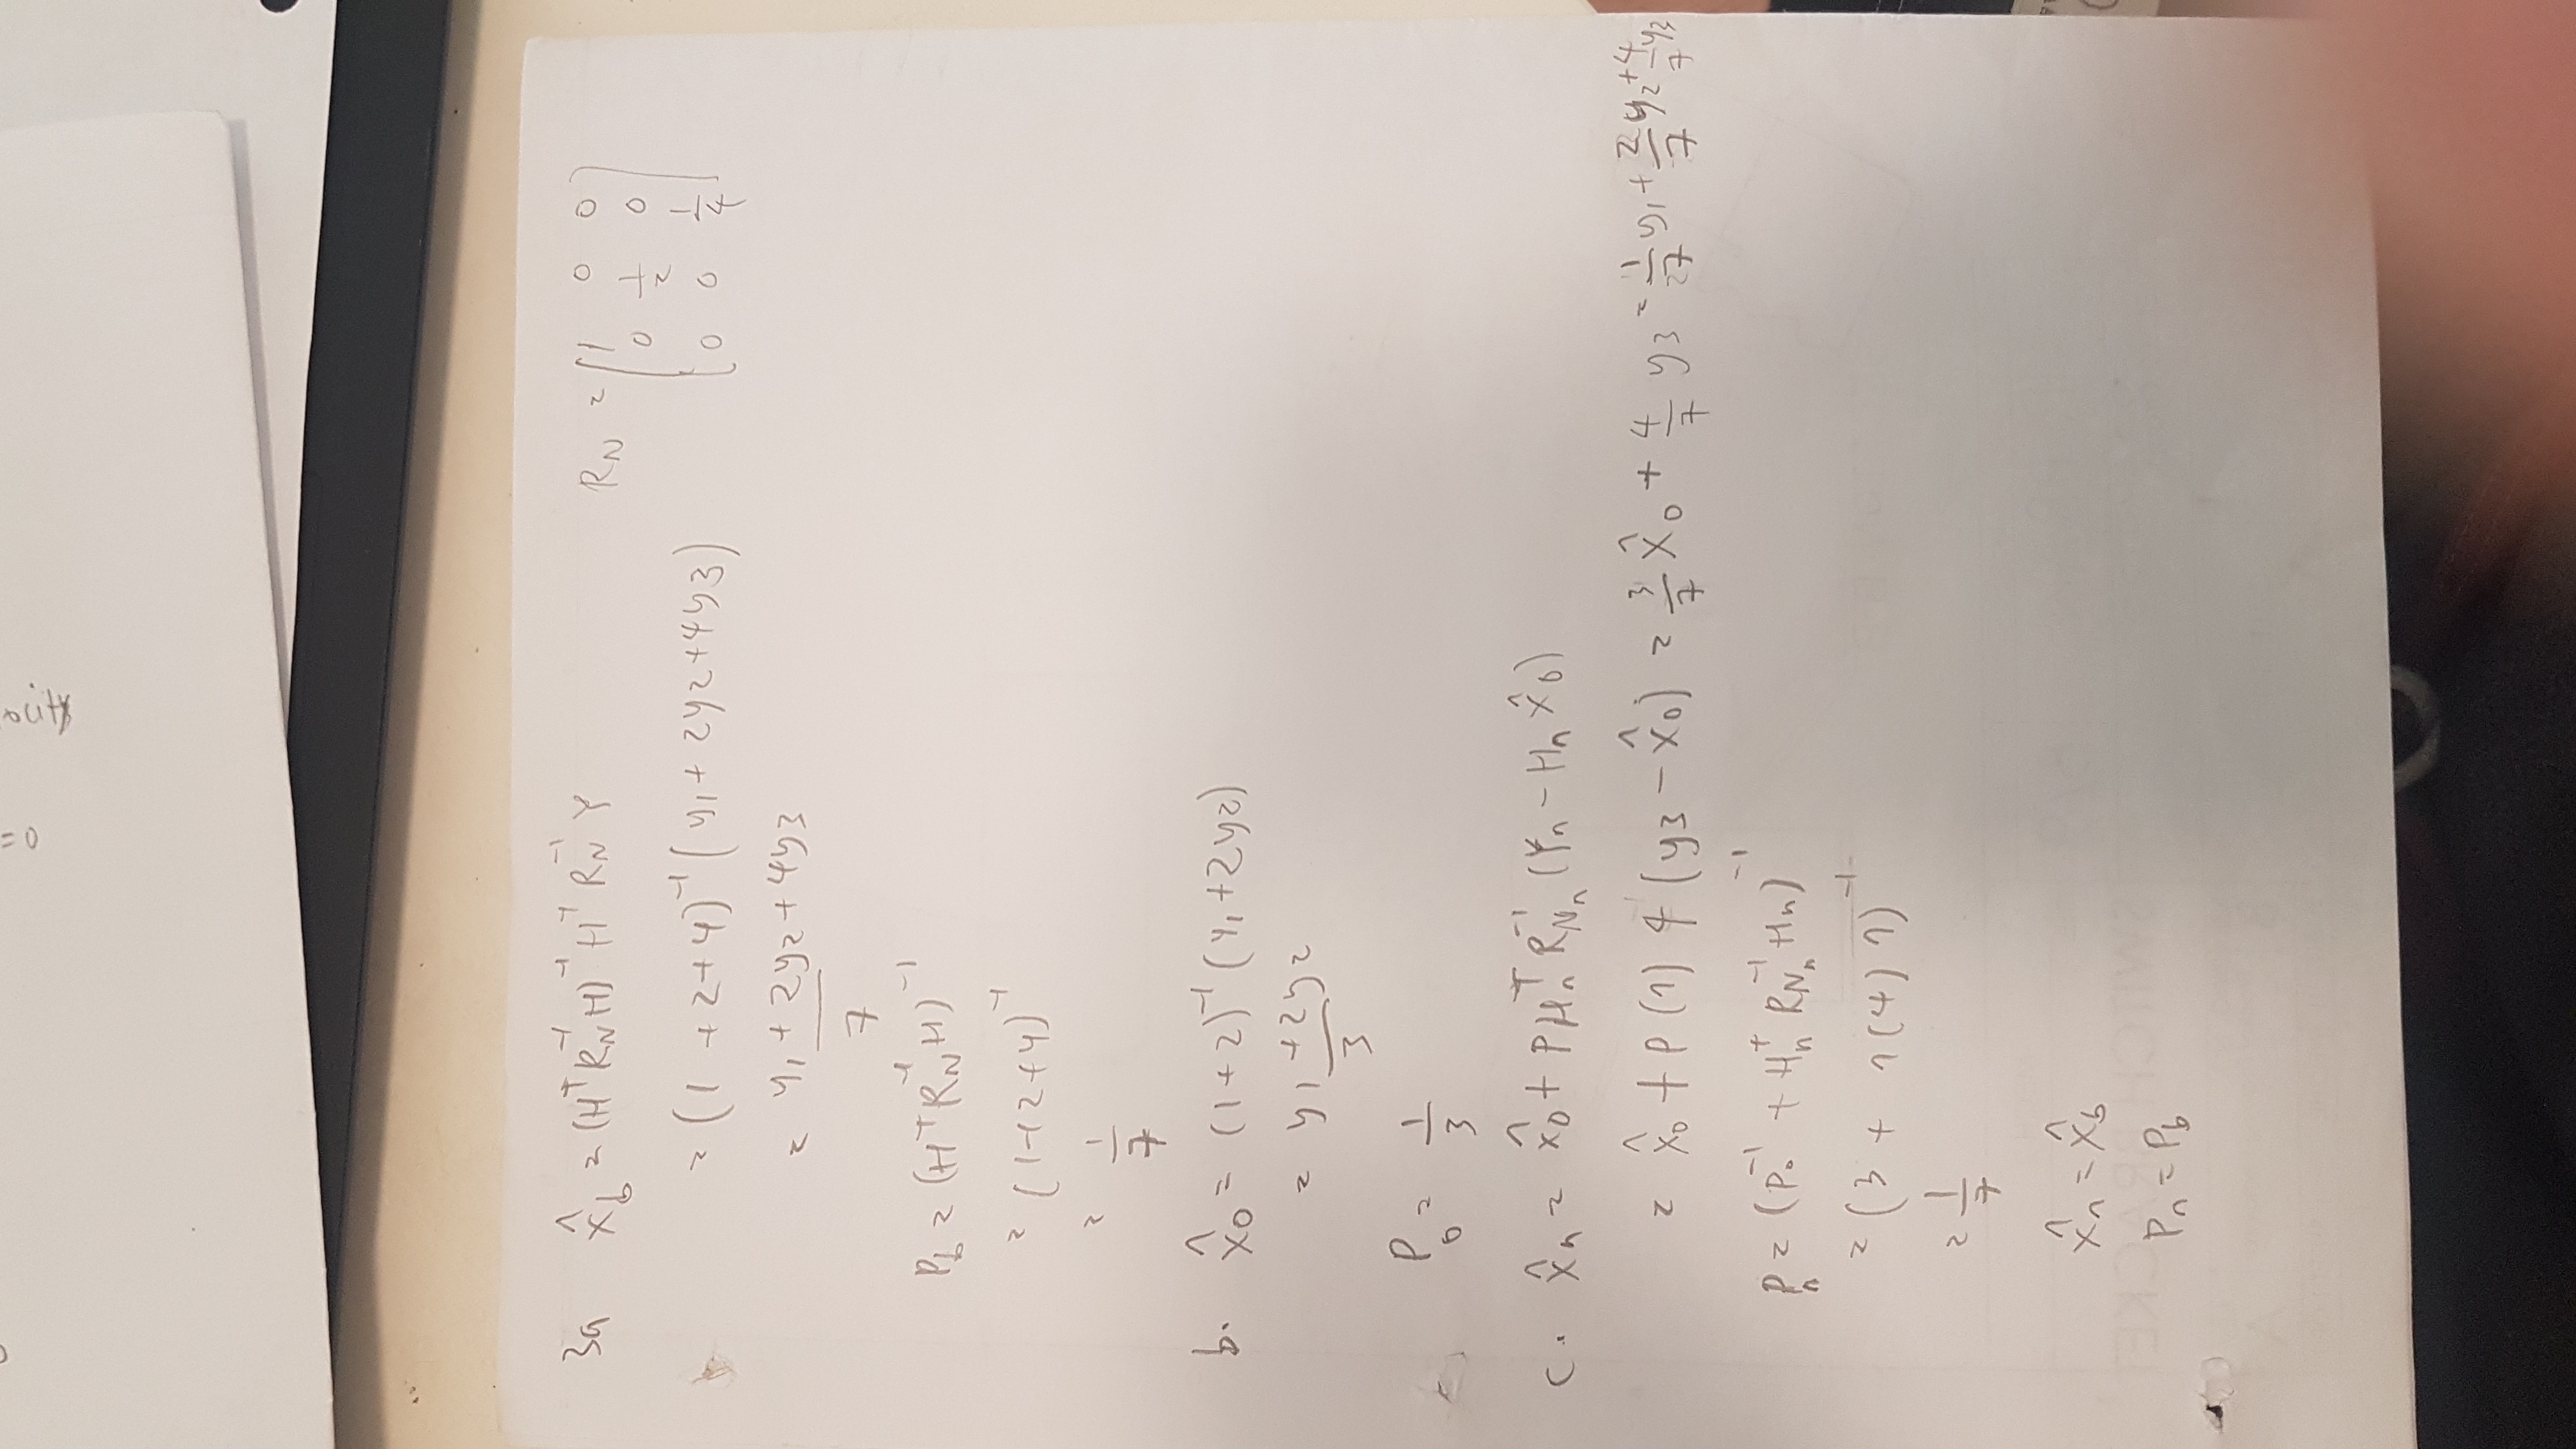 = 0
3a x̂_b = (H^T R_N^-1 H)^-1 H^T R_N^-1 Y
R_N = [1 0 0
0 1/2 0
0 0 1/4]
= (1 + 2 + 4)^-1 (y1 + 2y2 + 4y3)
= y1 + 2y2 + 4y3 / 7
P_b = (H^T R_N^-1 H)^-1
= (1 + 2 + 4)^-1
= 1/7
b. x̂_0 = (1 + 2)^-1 (y1 + 2y2)
= y1 + 2y2 / 3
P_0 = 1/3
c. x̂_n = x̂_0 + P H_n^T R_Nn^-1 (Y_n - H_n x̂_0)
= x̂_0 + P (1) 4 (y3 - x̂_0) = 3/7 x̂_0 + 4/7 y3 = 1/7 y1 + 2/7 y2 + 4/7 y3
P_n = (P_0^-1 + H_n^T R_Nn^-1 H_n)^-1
= (3 + 1(4)1)^-1
= 1/7
x̂_n = x̂_b
P_n = P_b
SWITCH BRACKET